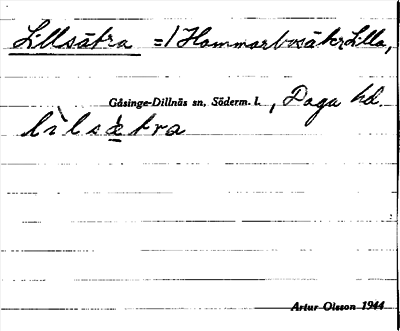 Lillsätra =/ Hammarbosäter Lilla,
Gåsinge-Dillnäs sn, Söderm. l., Daga hd.
lìlsætra
Artur Olsson 1944